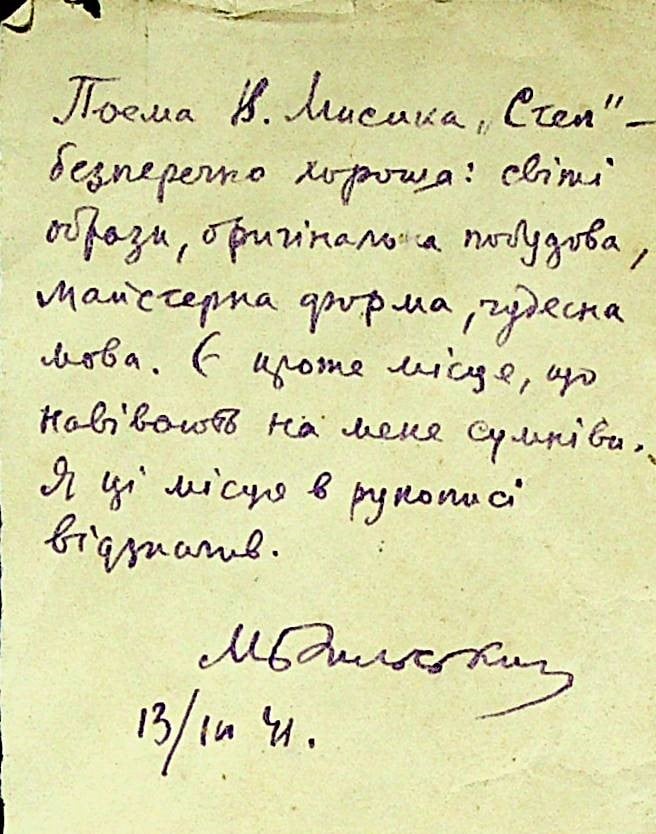 Поема В. Мисика „Степ" –
безперечно хороша: свіжі
образи, оригінальна побудова,
майстерна форма, чудесна
мова. Є проте місця, що
навівають на мене сумніви.
Я ці місця в рукописі
відзначив.
МРильський
13/III 41.